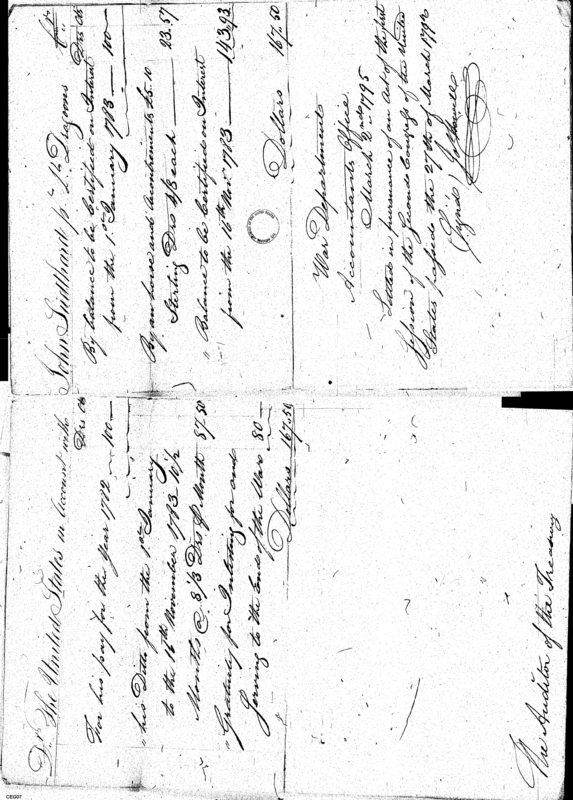 Dr. The United States in Account with
Drs Cts
For his pay for the year 1782 — 100 —
" his Ditto from the 1st January
to the 16th November 1783 10 1/2
Months @ 8/3 Drs P Month 87.50
" Gratuity for Inlisting for and
Serving to the End of the War 80 —
Dollars 167.50
The Auditor of the Treasury
John Suthard pr Lt Dragoons Cr.
Drs Cts
By balance to be Certified on Interest
from the 1st January 1783 — 100 —
By an horse and accoutrements £5.10
Sterling Drs 4/8 each — 23.57
" Balance to be Certified on Interest
from the 16th Novr 1783 — 143.93
Dollars 167.50
War Department
Accountants Office
March 2nd 1795
Settled in pursuance of an Act of the first
Session of the Second Congress of the United
States passed the 27th of March 1792
Signed Jo Howell
CEG07